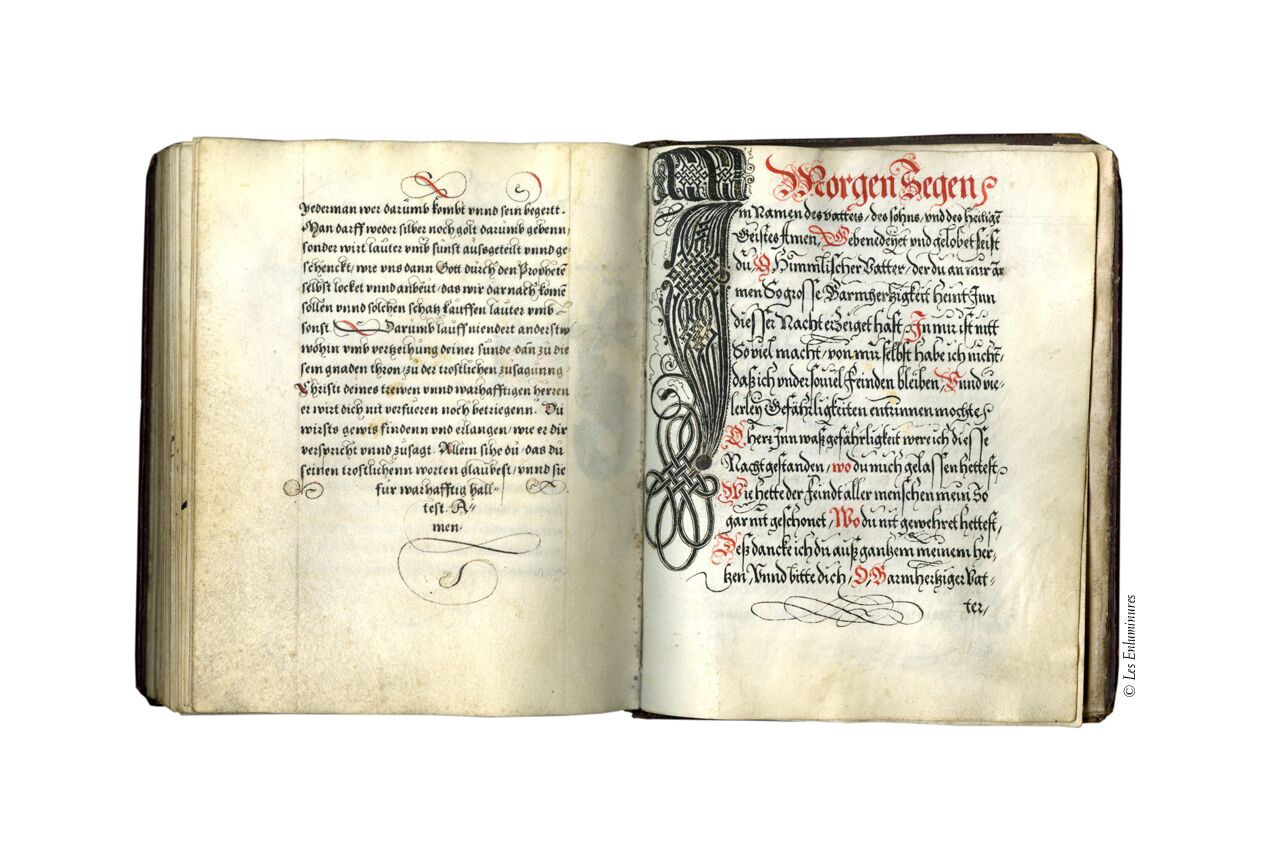 Yederman wer darumb kombt vnnd sein begertt.
Man darff weder silber noch golt darumb gebenn,
sonder wirt lauter vmb sunst ausgeteilt vnnd ge
schenckt, wie vns dann Gott durch den Prophetē
selbst locket vnnd anbeut, das wir dar nach komē
sollen vnnd solchen schatz kauffen lauter vmb
sonst. Darumb lauff niendert anderstw
wohin vmb vertzeihung deiner sunde, dan zu die
sem gnaden thron, zu der trostlichen zusagunng
Christi deines trewen vnnd warhafftigen herren
er wirt dich nit verfueren noch betriegenn. Du
wirsts gewis findenn vnnd erlangen, wie er dir
verspricht vnnd zusagt. Allein sihe du, das du
seinen trostlichenn worten glaubest, vnnd sie
fur warhafftig hall-
test. A-
men.
Morgen Segen
Im Namen des vatters, des sohns, vnd des heiligē
Geistes Amen, Gebenedeyet vnd gelobet seist
du O Himmlischer Vatter, der du an mir ar
men So grosse Barmhertzigkeit heint Inn
diesser Nacht erzeiget hast, In mir ist nitt
So viel macht, von mir selbst habe ich nicht,
daß ich vnder souiel feinden bleiben, Vnnd vie-
lerley Gefährligkeiten entrinnen mochte,
O herr Inn waß gefährligkeit were ich diesse
Nacht gestanden, wo du mich gelassen hettest,
Wie hette der feindt aller menschen mein So
gar nit geschonet, Wo du nit gewehret hettest,
Deß dancke ich dir auß gantzem meinem her-
tzen, Vnnd bitte dich, O Barmhertziger Vat-
ter,
© Les Enluminures